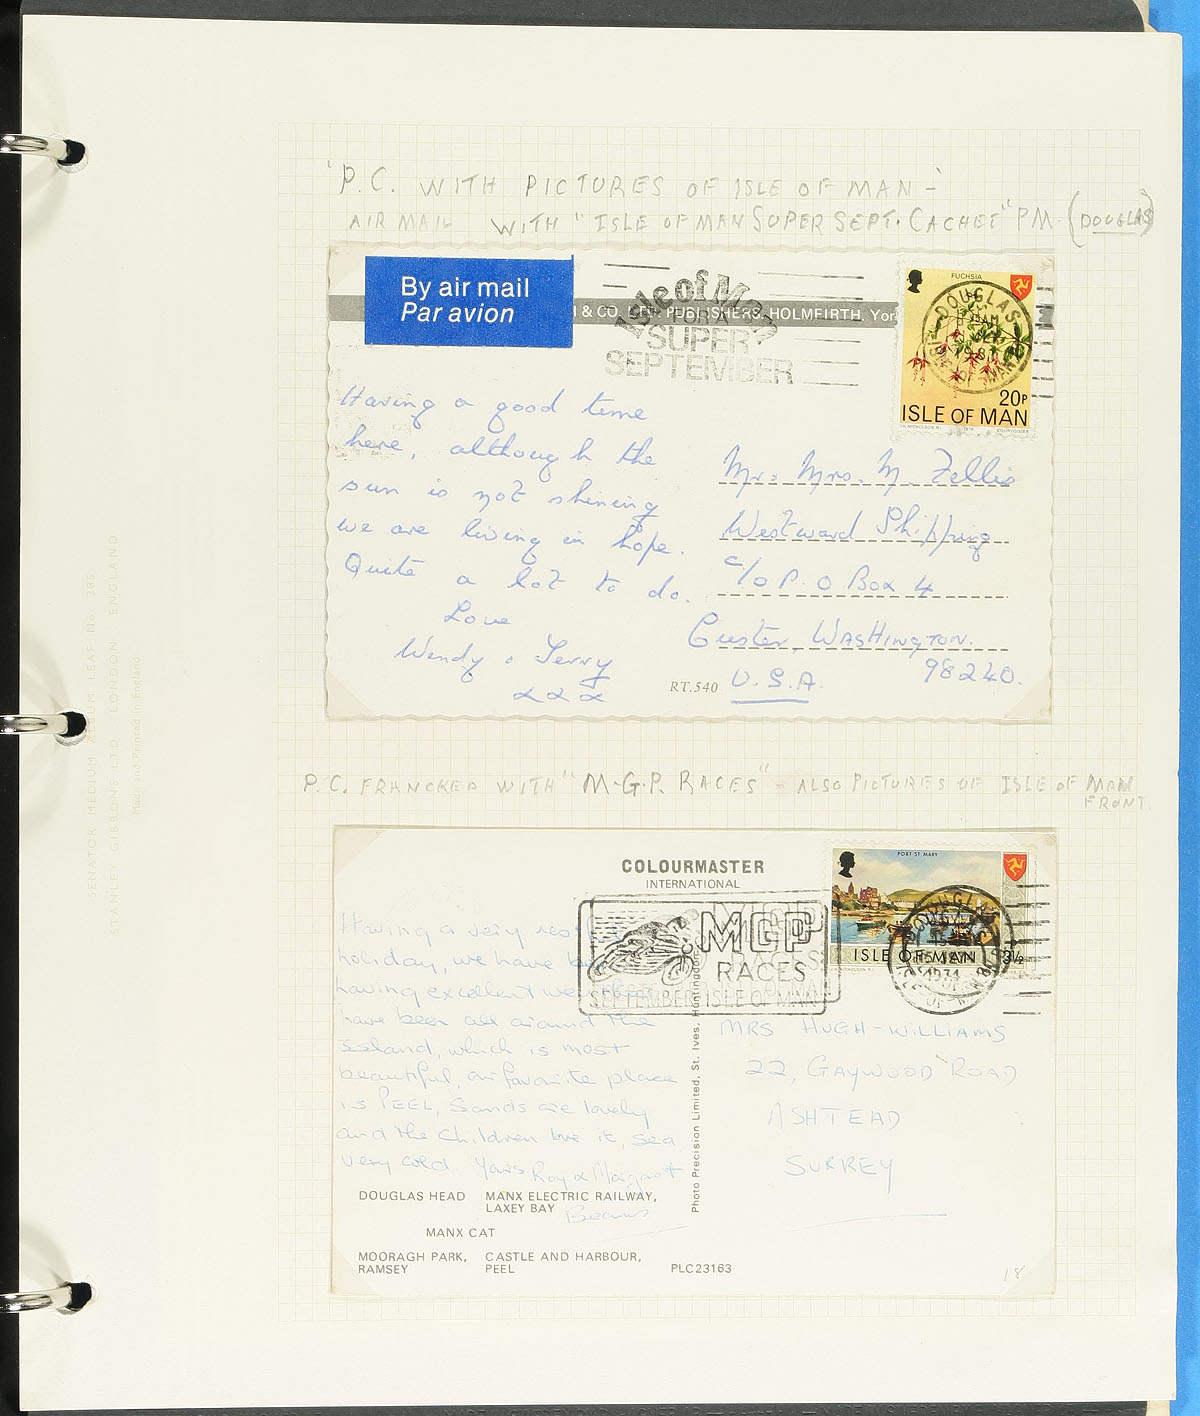 'P.C. WITH PICTURES OF ISLE OF MAN -'
AIR MAIL WITH "ISLE OF MAN SUPER SEPT. CACHET" PM. (DOUGLAS)
By air mail
Par avion
& CO. LTD. PUBLISHERS, HOLMFIRTH, Yor
Isle of Man
FOR A
SUPER
SEPTEMBER
FUCHSIA
DOUGLAS
20P
ISLE OF MAN
Having a good time
here, although the
sun is not shining
we are living in hope.
Quite a lot to do.
Love
Wendy & Terry
x x x
Mr. Mrs. M. Zellis
Westward Shipping
c/o P.O Box 4
Custer, WASHINGTON.
98240.
RT.540
U.S.A.
P.C. FRANCKED WITH "M.G.P. RACES" - ALSO PICTURES OF ISLE OF MAN
FRONT.
COLOURMASTER
INTERNATIONAL
PORT ST MARY
ISLE OF MAN 3½
DOUGLAS
MGP
RACES
SEPTEMBER ISLE OF MAN
Having a very
holiday, we have
having excellent
have been all around the
Island, which is most
beautiful, our favourite place
is PEEL, Sands are lovely
and the Children love it, sea
very cold. Yours Roy & Margaret
MRS HUGH-WILLIAMS
22, GAYWOOD ROAD
ASHTEAD
SURREY
Photo Precision Limited, St. Ives, Huntingdon
DOUGLAS HEAD
MANX ELECTRIC RAILWAY,
LAXEY BAY
MANX CAT
MOORAGH PARK,
RAMSEY
CASTLE AND HARBOUR,
PEEL
PLC23163
18
SENATOR MEDIUM ALBUM LEAF No 385
STANLEY GIBBONS LTD LONDON ENGLAND
Made and Printed in England